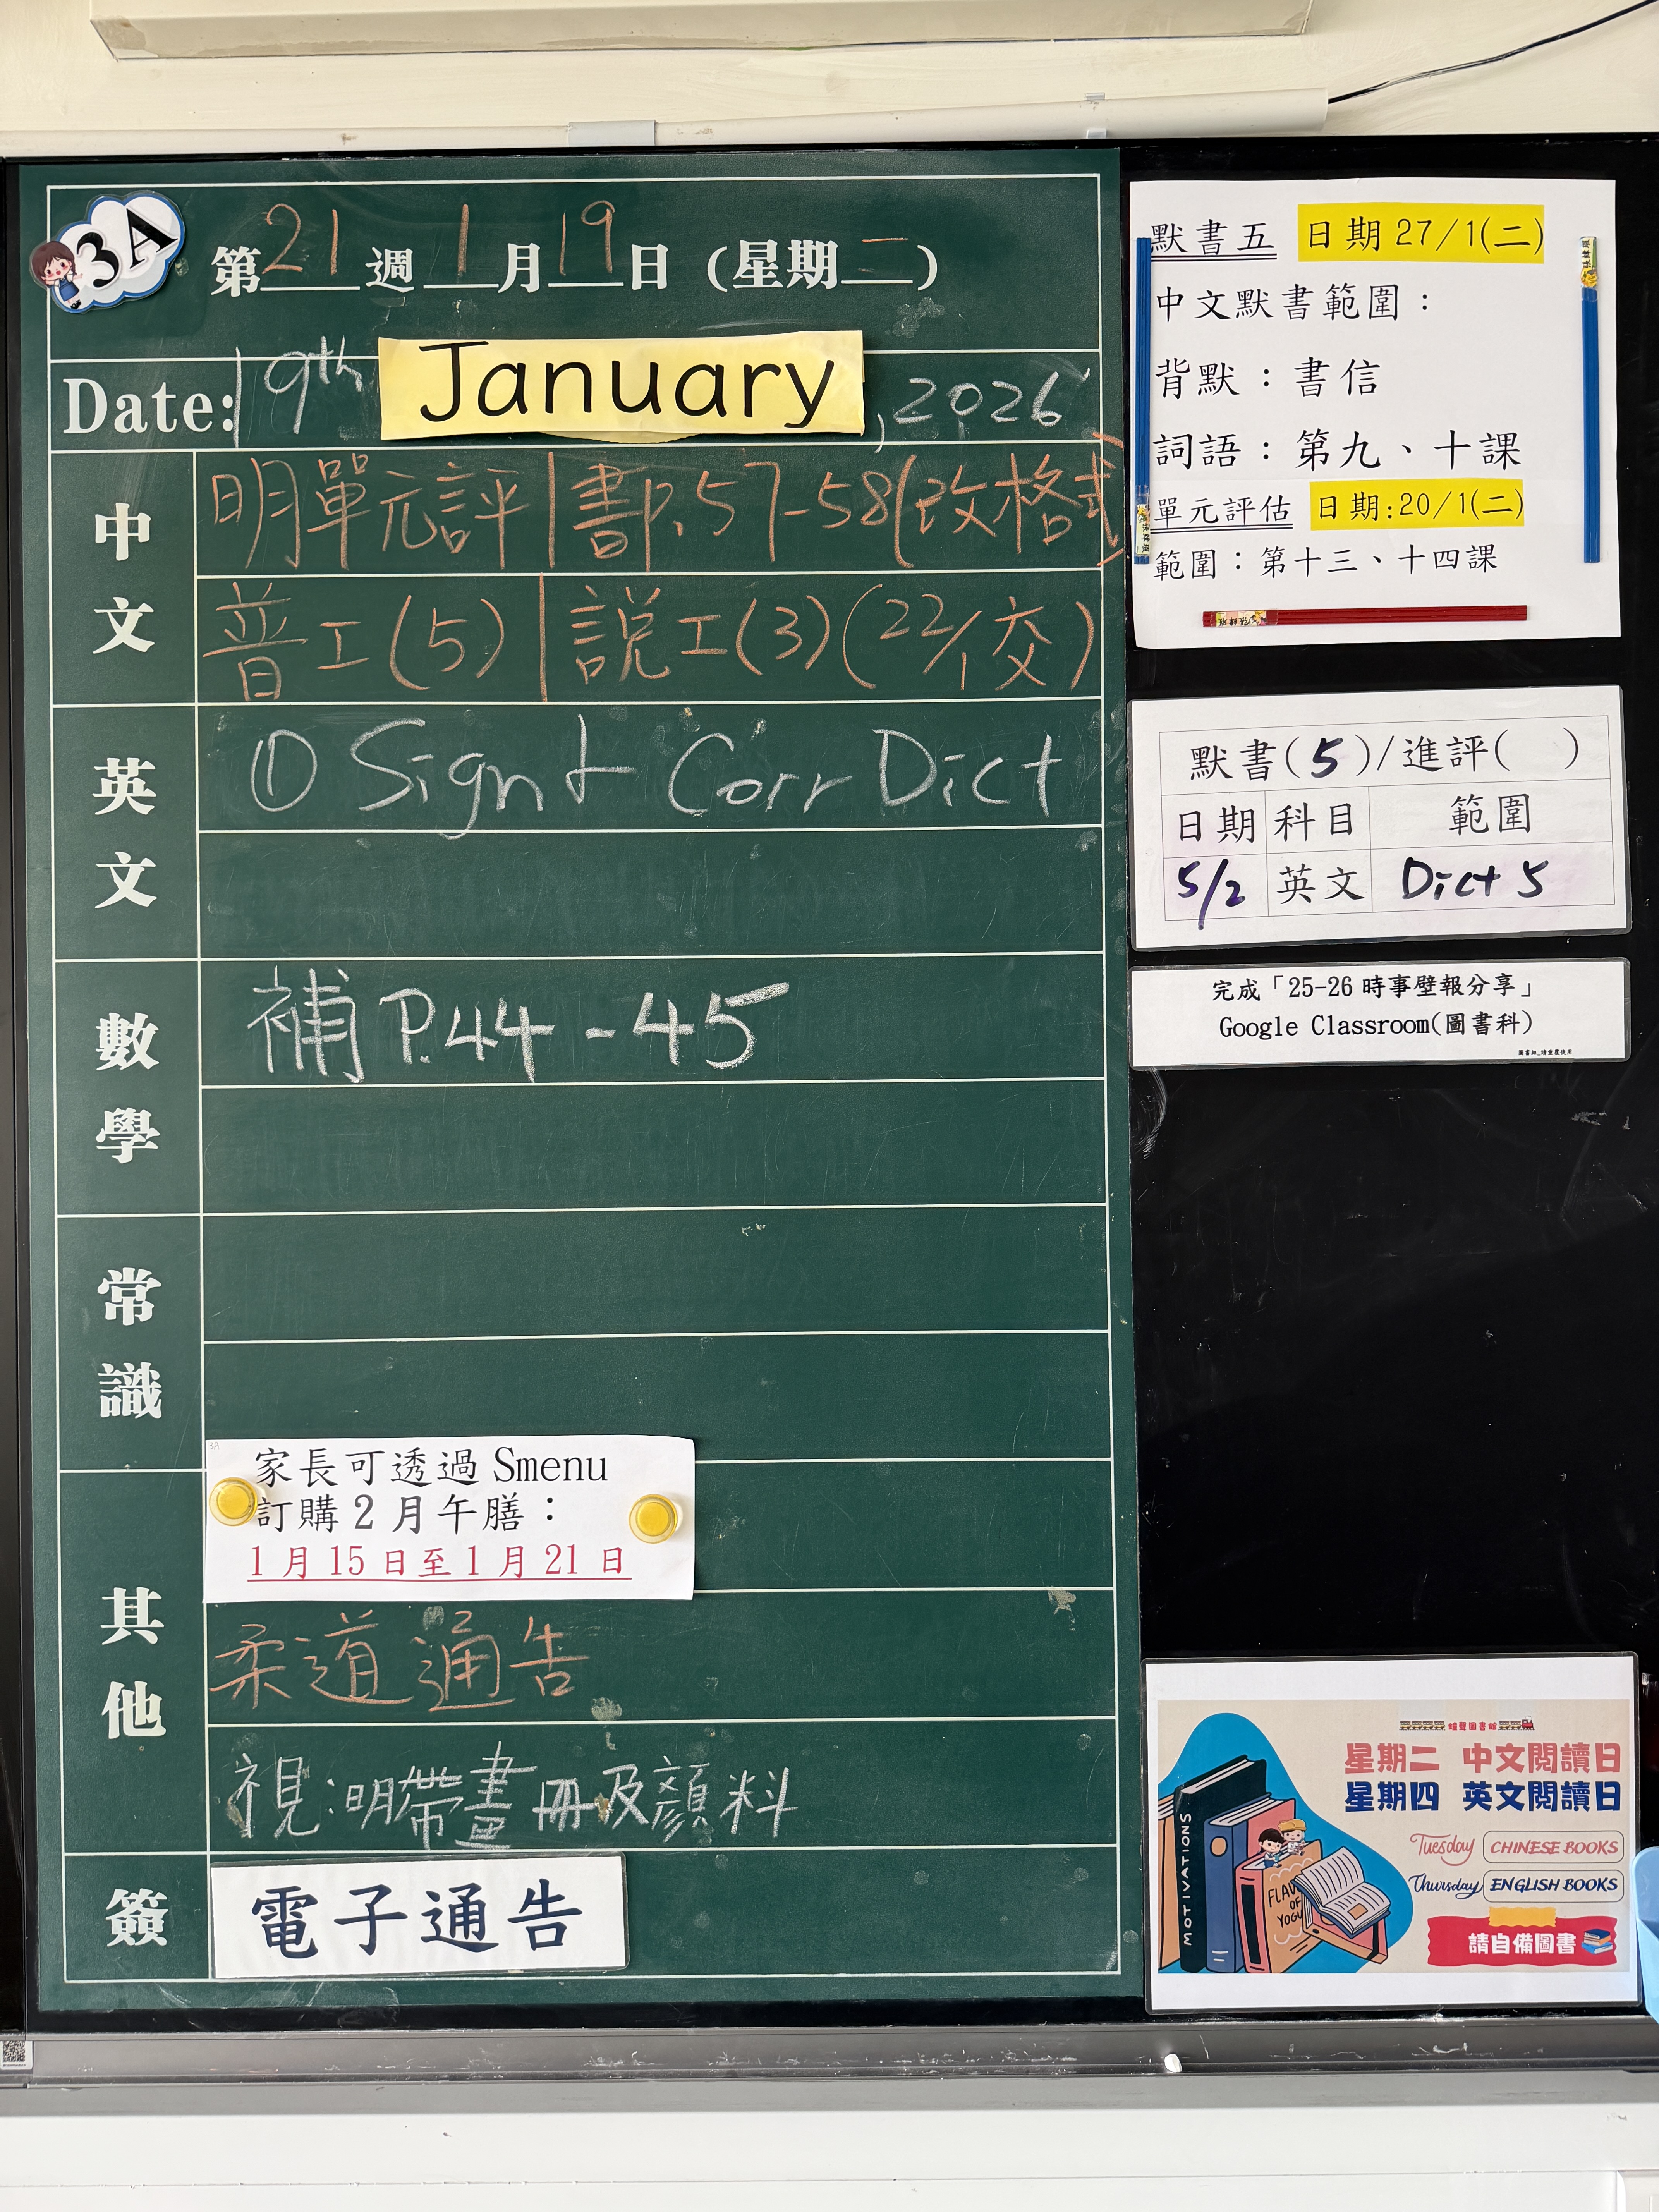 3A
第21週1月19日(星期一)
Date:19th January,2026
中文
明單元評|書P.57-58(改格式)
普工(5)|説工(3)(22/1交)
英文
① Sign & Corr Dict
數學
補P.44-45
常識
其他
3A
家長可透過 Smenu
訂購 2 月午膳：
1 月 15 日至 1 月 21 日
柔道通告
視:明帶畫冊及顏料
簽
電子通告
默書五 日期 27/1(二)
中文默書範圍：
背默：書信
詞語：第九、十課
單元評估 日期:20/1(二)
範圍：第十三、十四課
默書(5)/進評( )
日期 科目 範圍
5/2 英文 Dict 5
完成「25-26 時事壁報分享」
Google Classroom(圖書科)
星期二 中文閱讀日
星期四 英文閱讀日
Tuesday CHINESE BOOKS
Thursday ENGLISH BOOKS
請自備圖書
MOTIVATIONS
FLAV
OF
YOGU